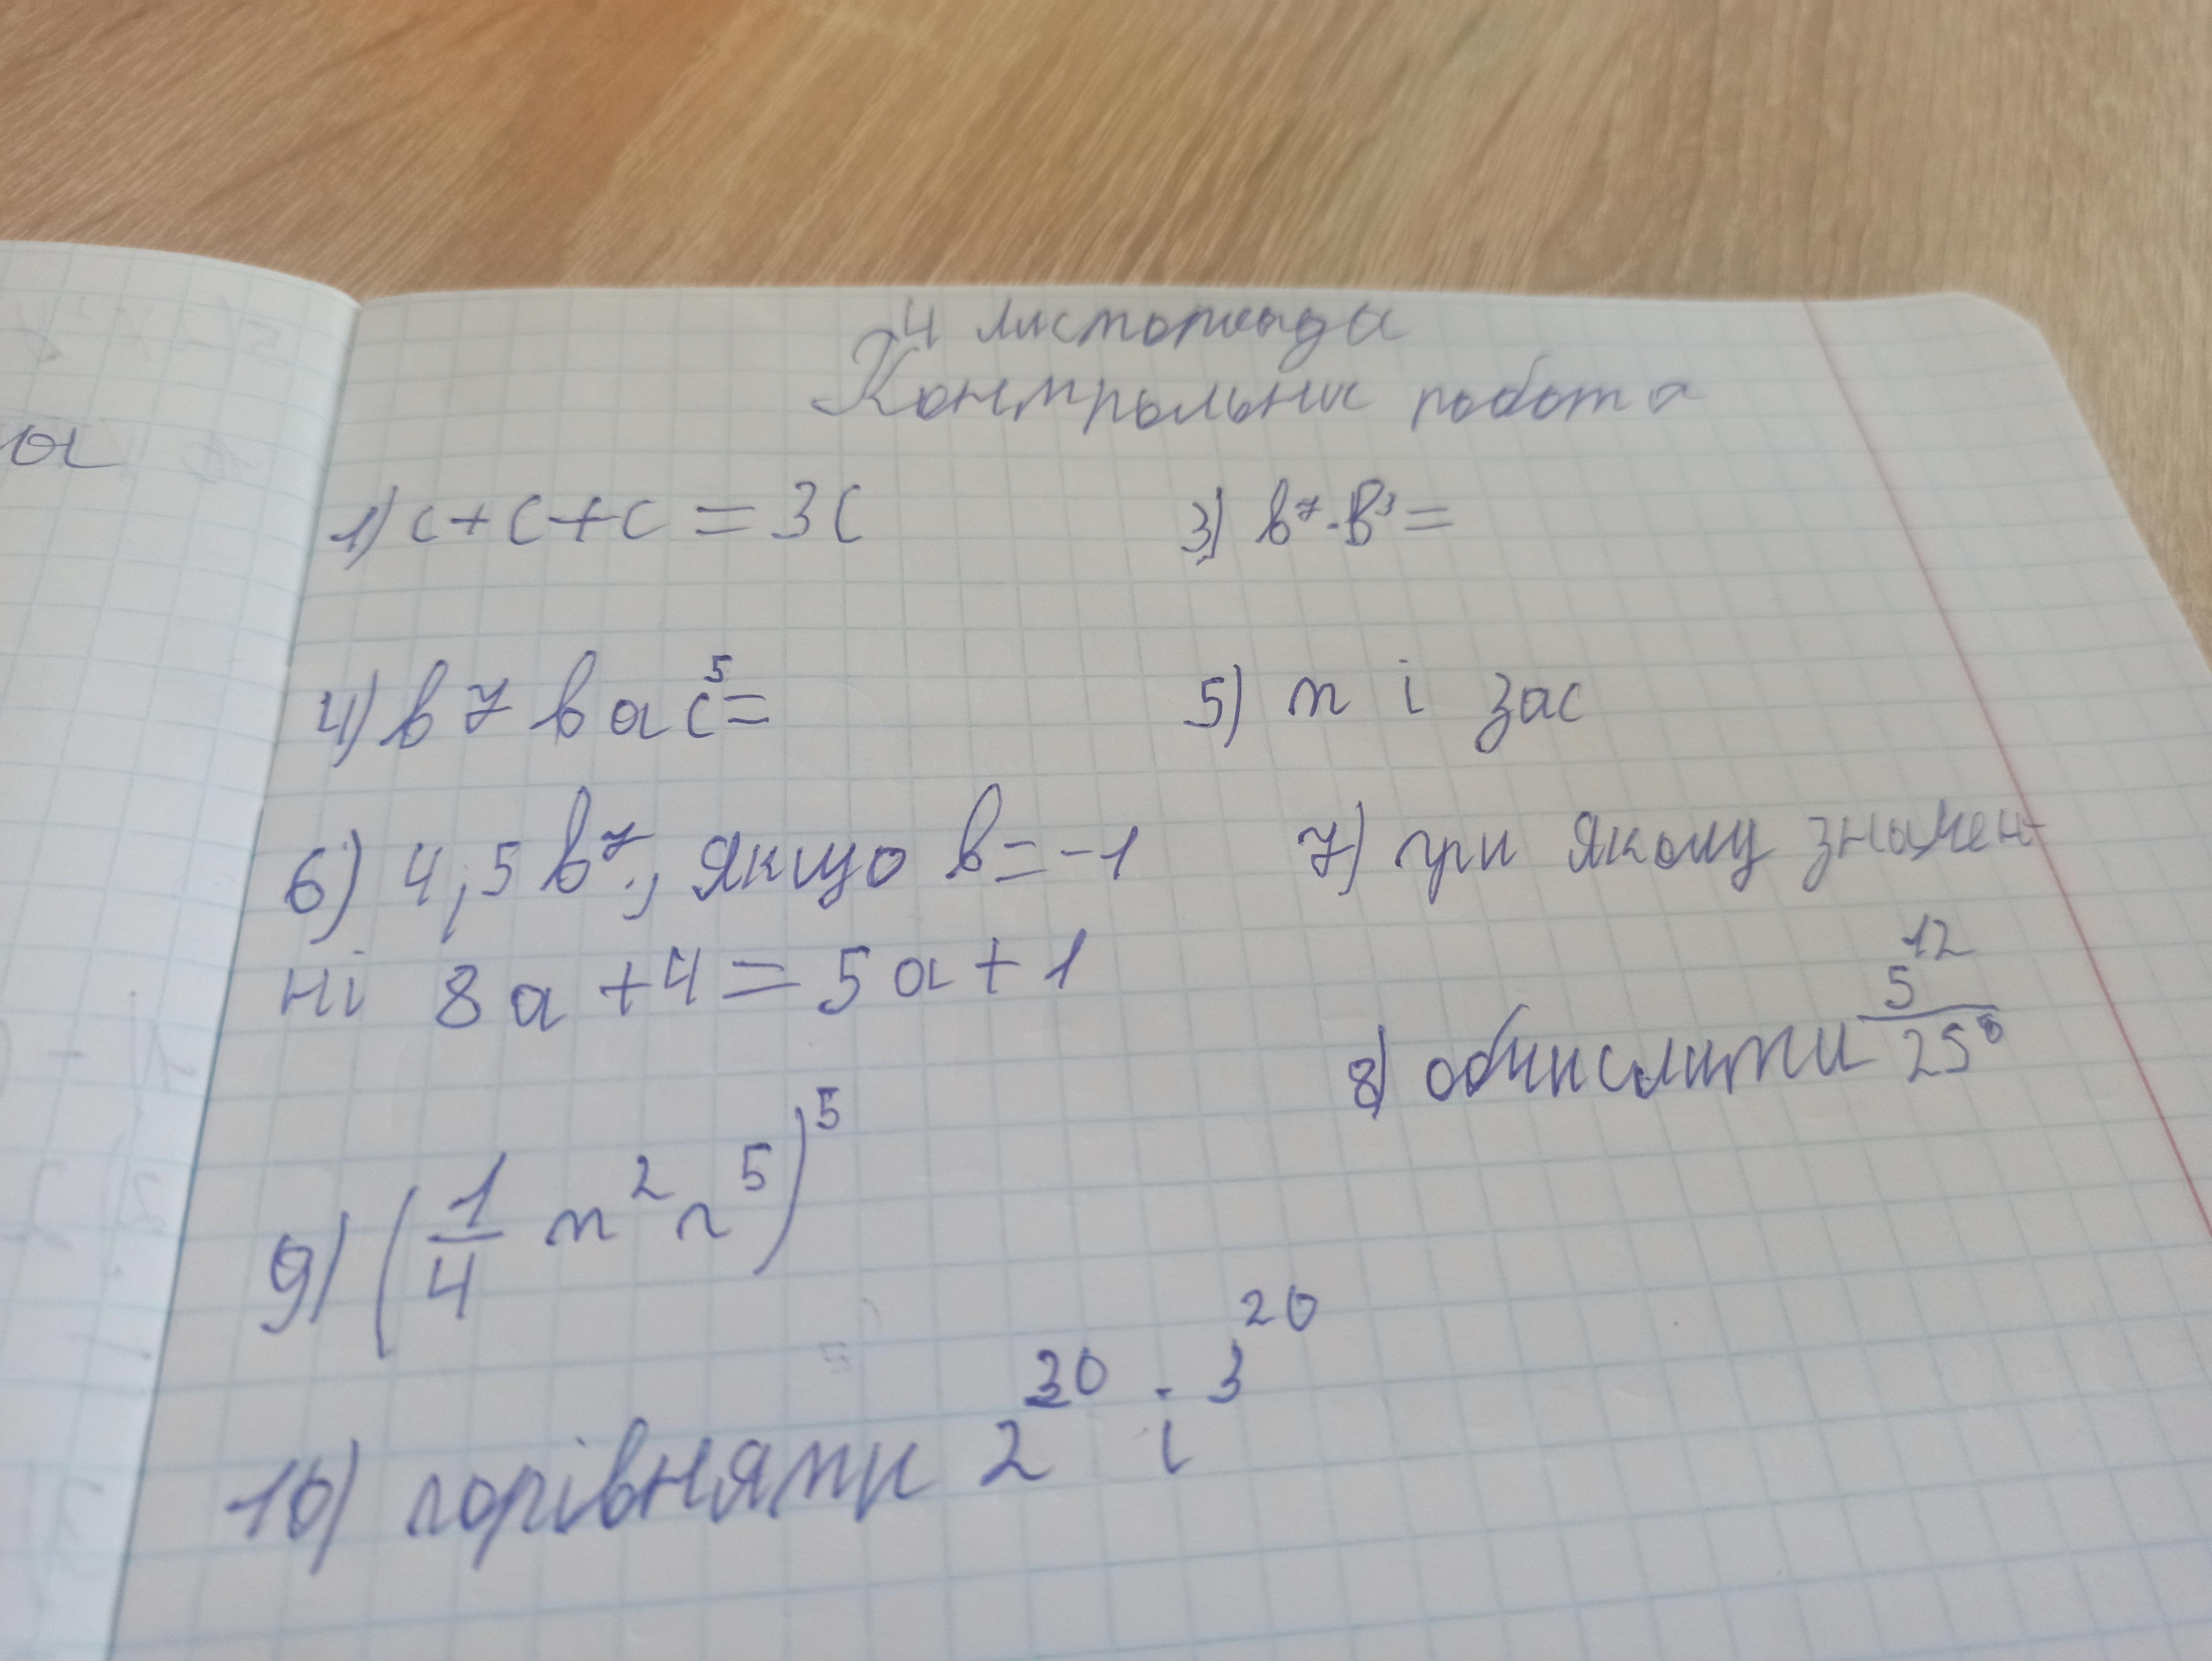 4 листопада
Контрольна робота
1) c+c+c=3c 3) b⁷·b³=
4) b 7 b a c⁵= 5) n і 3ac
6) 4,5 b⁷, якщо b=-1 7) при якому значен-
ні 8a+4=5a+1
8) обчислити 5¹²/25⁵
9) (1/4 m²n⁵)⁵
10) порівняти 2³⁰ і 3²⁰